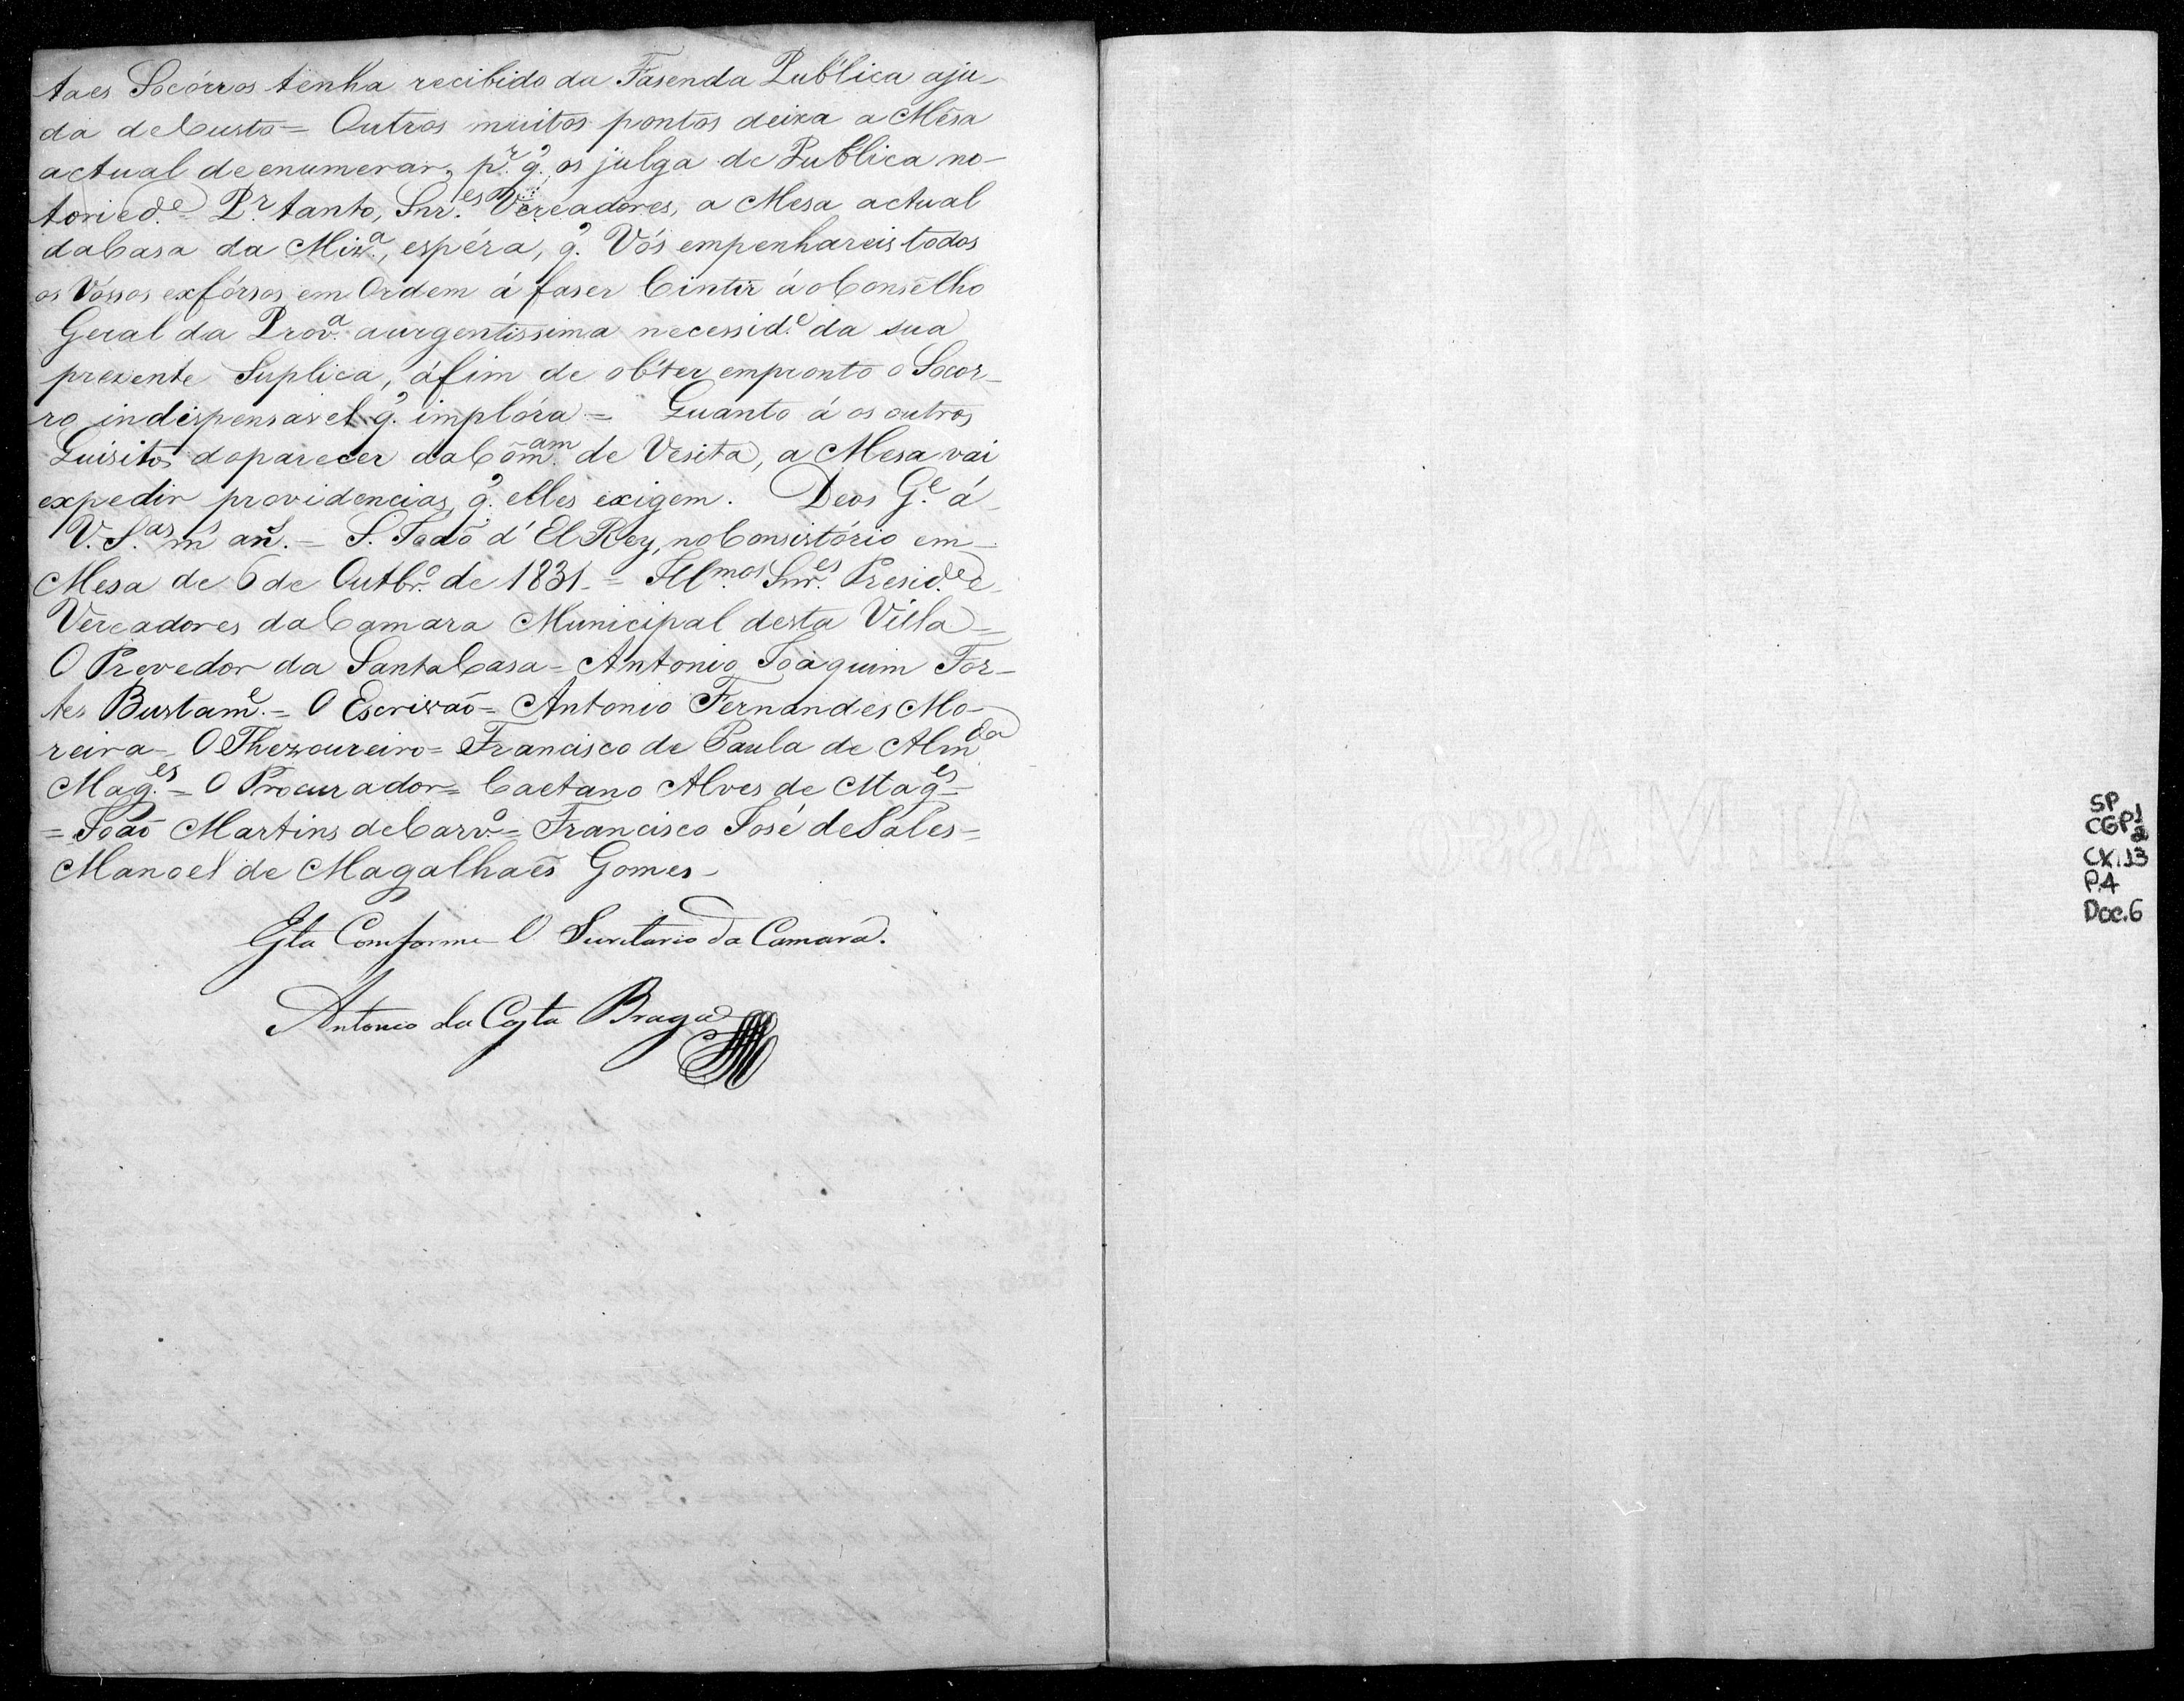 taes Socórros tenha recibido da Fasenda Publica aju-
da de Custo = Outros muitos pontos deixa a Mêsa
actual de enumerar, pr. q. os julga de Publica no-
toried.e Pr. tanto, Snr.es Vereadores, a Mesa actual
da Casa da Miz.a, espéra, q. Vós empenhareis todos
os Vóssos exfórsos em Ordem á faser Cintir áo Conselho
Geral da Prov.a a urgentissima necessid.e da sua
prezente Suplica, áfim de obter empronto o Socor-
ro indispensavel q. implóra = Quanto á os outros
Quisitos do parecer da Cõm.am de Vesita, a Mesa vai
expedir providencias q. elles exigem. Deos G.e á
V. S.as m.s an.s = S. Joaõ d' El Rey, no Consistório em
Mesa de 6 de Outbr.o de 1831 = Ill.mos Snr.es Presid.e e
Vereadores da Camara Municipal desta Villa =
O Provedor da Santa Casa = Antonio Joaquim For-
tes Bustam.e = O Escrivaõ = Antonio Fernandes Mo-
reira = O Thezoureiro = Francisco de Paula de Alm.da
Mag.es = O Procurador = Caetano Alves de Mag.es
= Joaõ Martins de Carv.o = Francisco José de Sales =
Manoel de Magalhaẽs Gomes -
Esta Comforme O Secretario da Camara.
Antonio da Costa Braga
SP
CGP1
2
CX.13
P.4
Doc.6